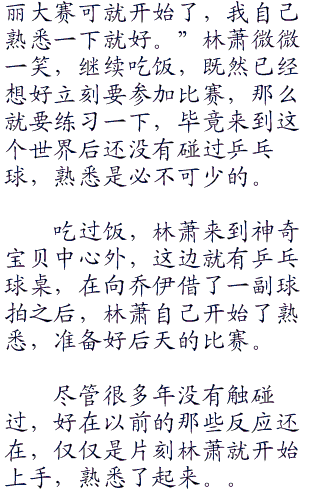 丽大赛可就开始了，我自己
熟悉一下就好。”林萧微微
一笑，继续吃饭，既然已经
想好立刻要参加比赛，那么
就要练习一下，毕竟来到这
个世界后还没有碰过乒乓
球，熟悉是必不可少的。
吃过饭，林萧来到神奇
宝贝中心外，这边就有乒乓
球桌，在向乔伊借了一副球
拍之后，林萧自己开始了熟
悉，准备好后天的比赛。
尽管很多年没有触碰
过，好在以前的那些反应还
在，仅仅是片刻林萧就开始
上手，熟悉了起来。。